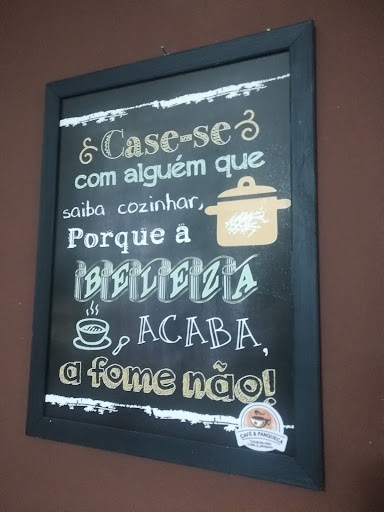 Case-se
com alguém que
saiba cozinhar,
Porque a
BELEZA
ACABA,
a fome não!
CAFÉ & PANQUECA